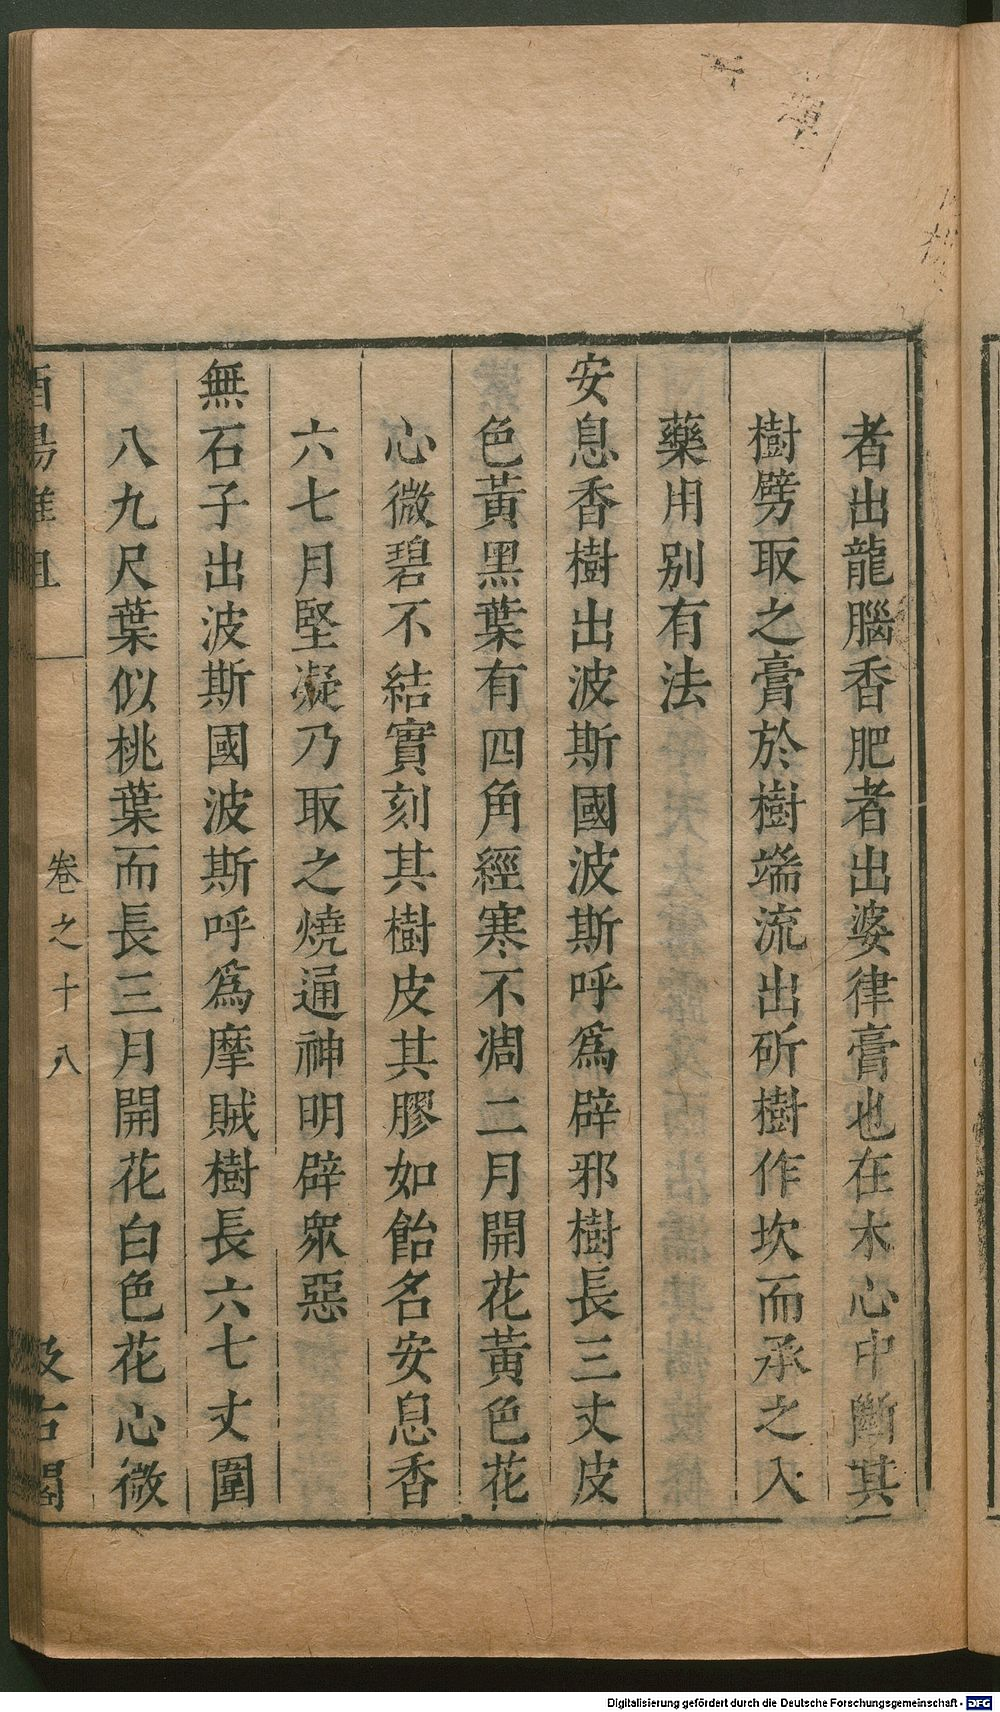 者出龍腦香肥者出婆律膏也在木心中斷其
樹劈取之膏於樹端流出斫樹作坎而承之入
藥用别有法
安息香樹出波斯國波斯呼爲辟邪樹長三丈皮
色黃黑葉有四角經寒不凋二月開花黃色花
心微碧不結實刻其樹皮其膠如飴名安息香
六七月堅凝乃取之燒通神明辟衆惡
無石子出波斯國波斯呼爲摩賊樹長六七丈圍
八九尺葉似桃葉而長三月開花白色花心微
酉陽雜俎
卷之十八
汲古閣
Digitalisierung gefördert durch die Deutsche Forschungsgemeinschaft - DFG